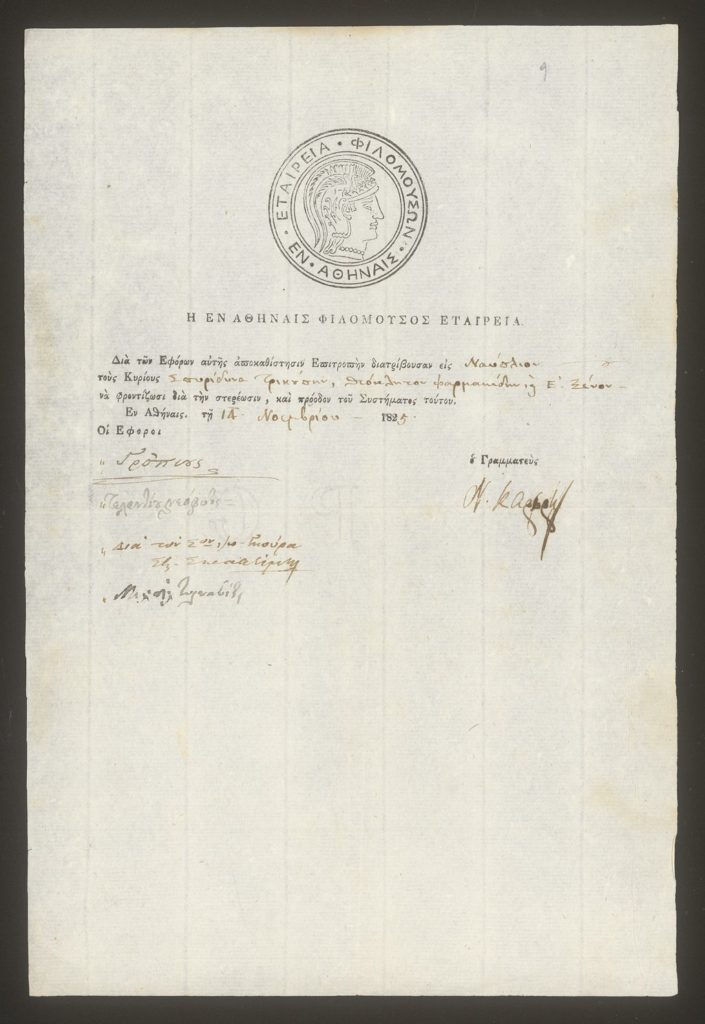 9
ΕΤΑΙΡΕΙΑ • ΦΙΛΟΜΟΥΣΩΝ • ΕΝ • ΑΘΗΝΑΙΣ •
Η ΕΝ ΑΘΗΝΑΙΣ ΦΙΛΟΜΟΥΣΟΣ ΕΤΑΙΡΕΙΑ.
Διὰ τῶν Εφόρων αὐτῆς ἀποκαθίστησιν Επιτροπὴν διατρίβουσαν εἰς Ναύπλιον
τοὺς Κυρίους Σπυρίδωνα Τρικούπην, Θεόκλητον Φαρμακίδην, Ε. Ξένον
νὰ φροντίζωσι διὰ τὴν στερέωσιν, καὶ πρόοδον τοῦ Συστήματος τούτου.
Εν Αθήναις. τῇ 14 Νοεμβρίου 1825.
Οἱ Εφοροι
ὁ Γραμματεὺς
Γρόπιος
Ν. Καρώρης
Διὰ τὸν Γκούρα